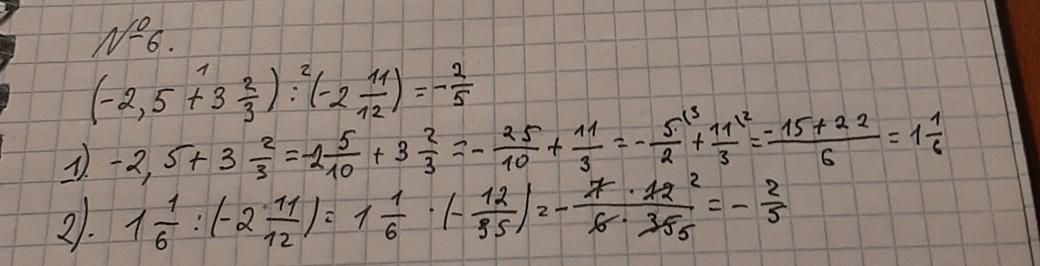 №6.
(-2,5 + 3 2/3) : (-2 11/12) = -2/5
1). -2,5 + 3 2/3 = -2 5/10 + 3 2/3 = -25/10 + 11/3 = -5/2 (3 + 11/3 (2 = -15+22/6 = 1 1/6
2). 1 1/6 : (-2 11/12) = 1 1/6 · (-12/35) = -7 · 12 2/6 · 35 5 = -2/5